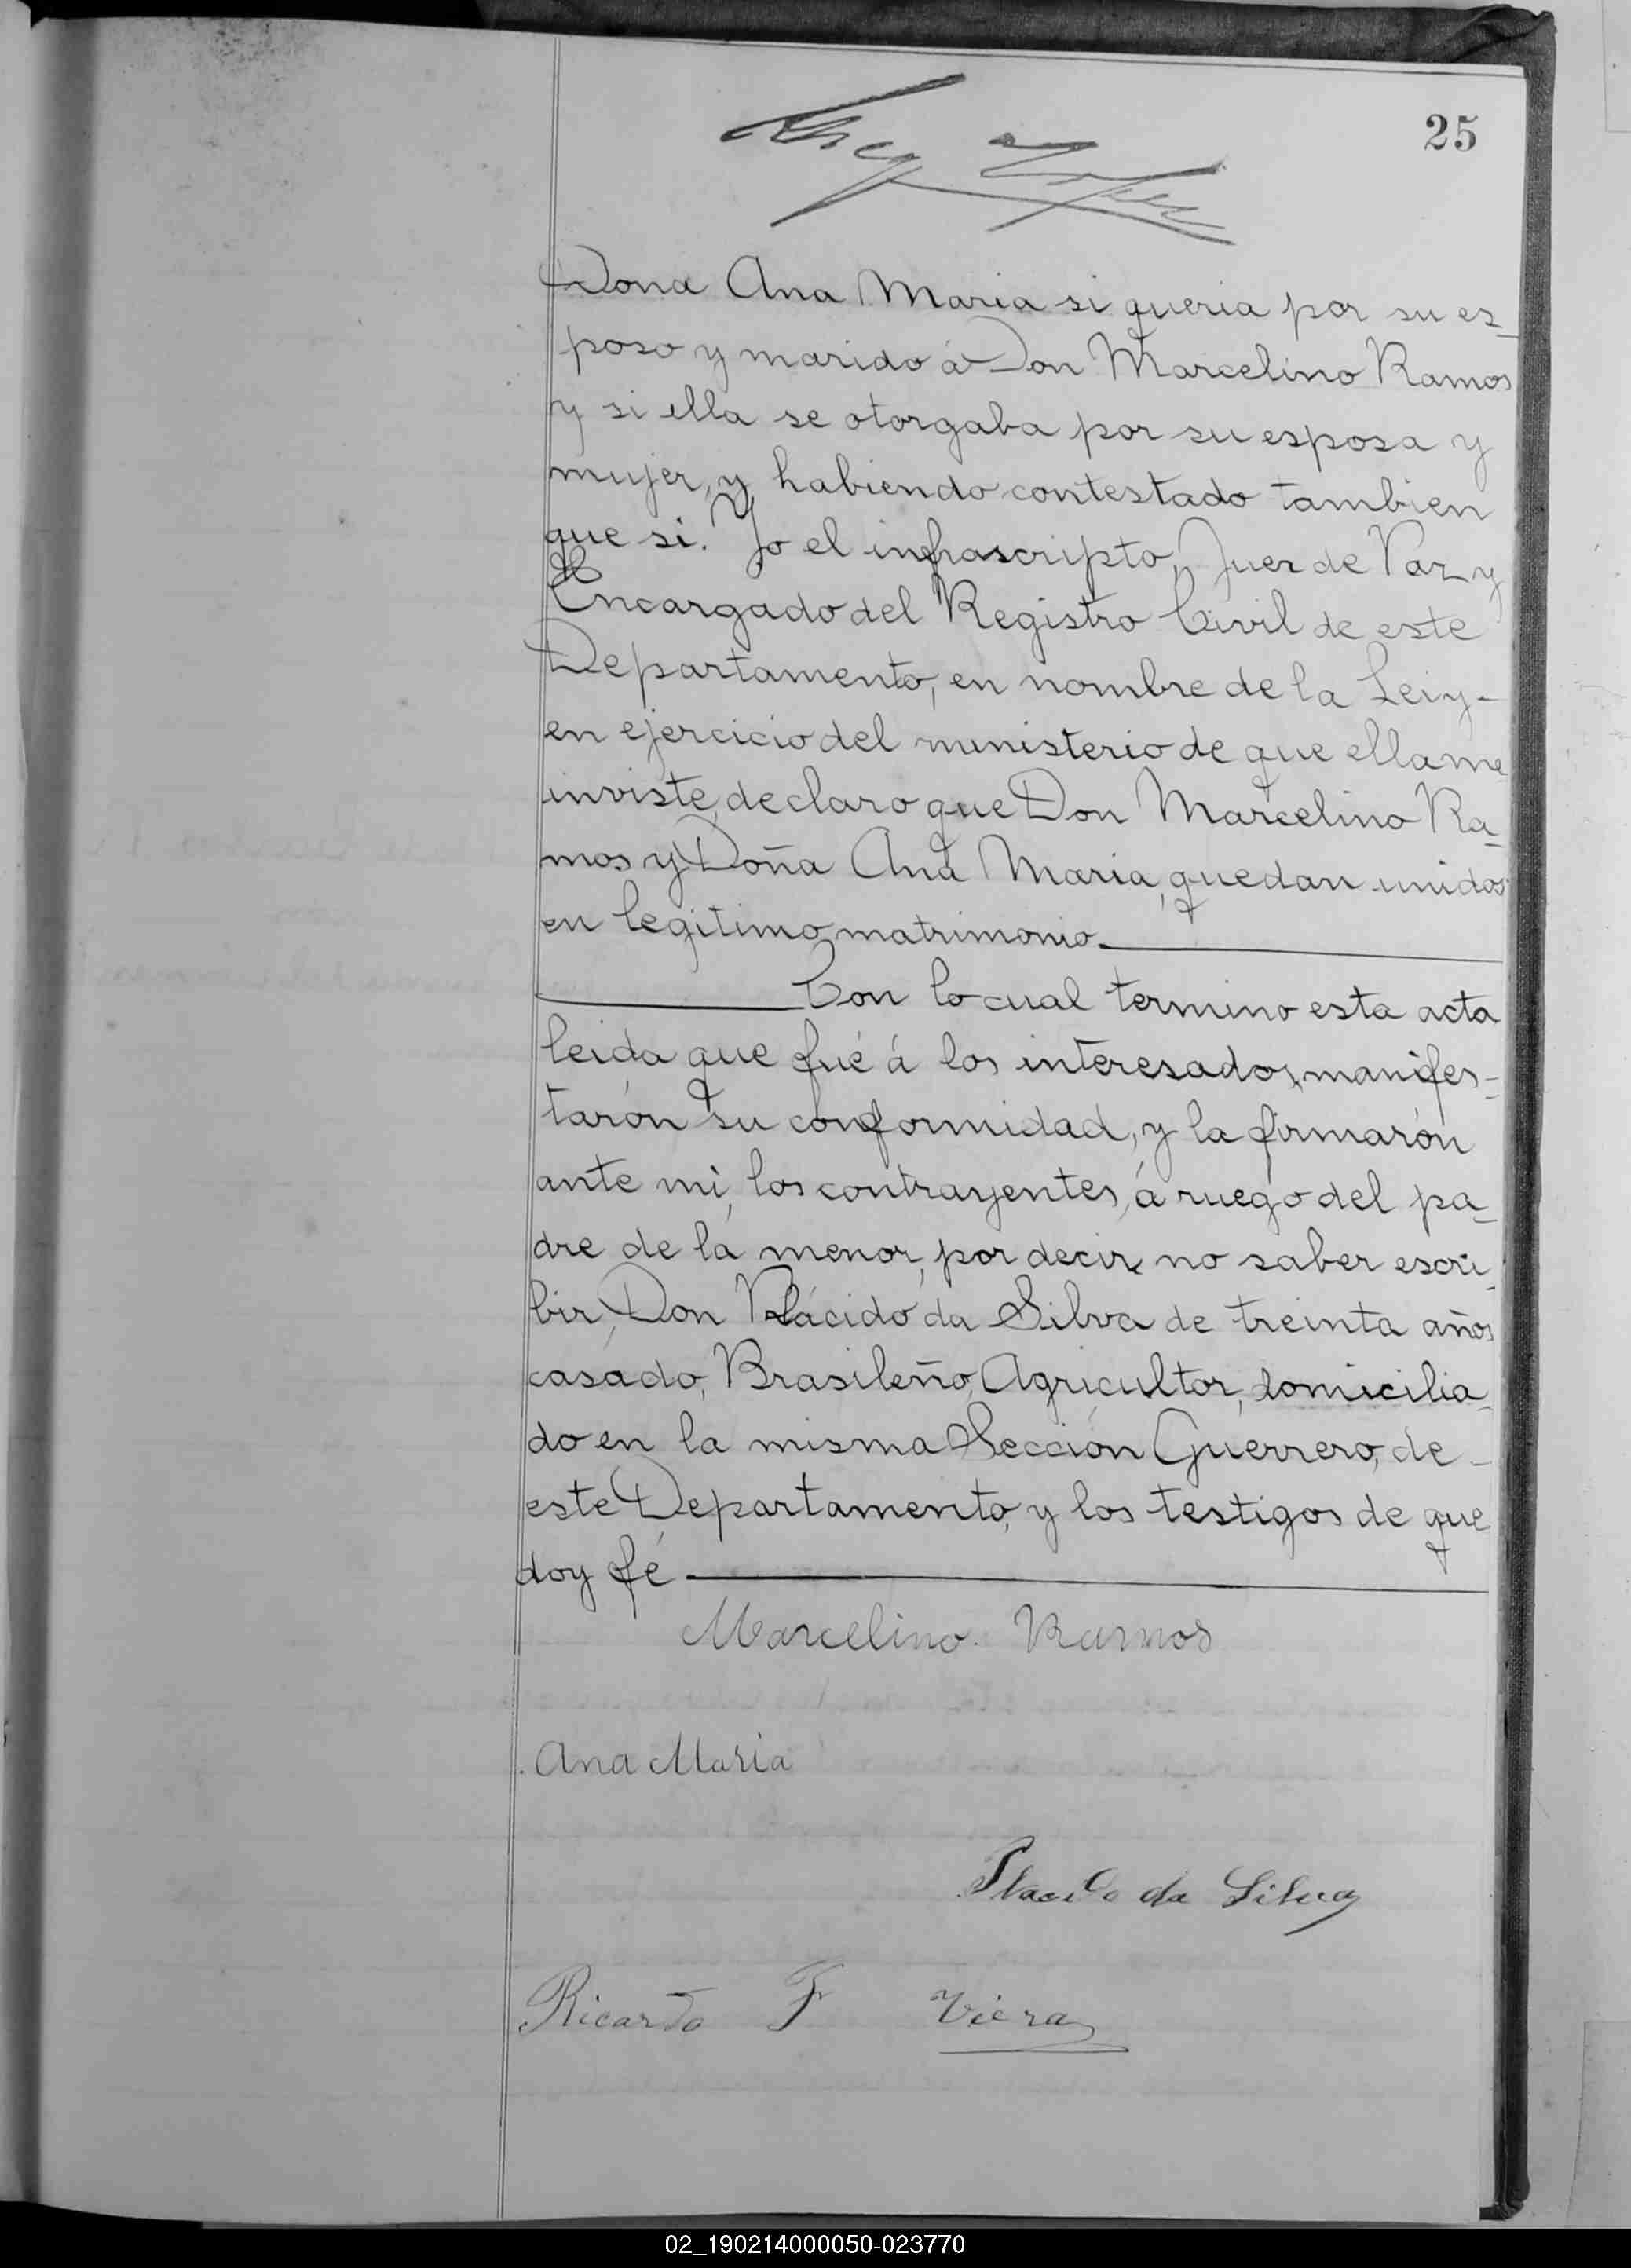 25
Dona Ana Maria si queria por su es_
poso y marido á Don Marcelino Ramos
y si ella se otorgaba por su esposa y
mujer, y habiendo contestado tambien
que si. Yo el infrascripto, Juez de Paz y
Encargado del Registro Civil de este
Departamento, en nombre de la Lei y-
en ejercicio del ministerio de que ella me
inviste, declaro que Don Marcelino Ra_
mos y Doña Ana Maria, quedan unidos
en legitimo matrimonio.
Con lo cual termino esta acta
leida que fué á los interesados, manifes_
tarón su conformidad, y la firmarón
ante mi, los contrayentes, á ruego del pa_
dre de la menor, por decir no saber escri_
bir, Don Plácido da Silva de treinta años
casado, Brasileño, Agricultor, domicilia_
do en la misma Sección Guerrero, de-
este Departamento, y los testigos de que
doy fé
Marcelino Ramos
Ana Maria
Placido da Silva
Ricardo F Viera
02_190214000050-023770